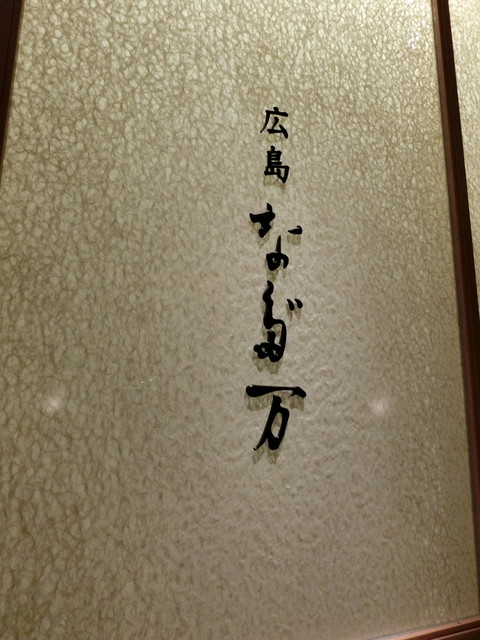 広島なだ万